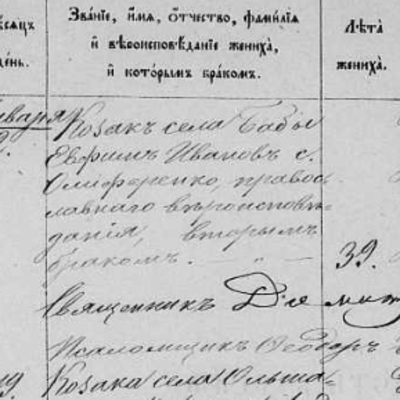 ѣсяцъ
день.
Званіе, имя, отчество, фамилія
и вѣроисповѣданіе жениха,
и которымъ бракомъ.
Лѣта
жениха.
Января
9.
Козакъ села Бабы
Евфимъ Ивановъ с.
Олиференко, правос
лавнаго вѣроисповѣ
данія, вторымъ
бракомъ.
39.
Священникъ Димит
Псаломщикъ Ѳеодоръ
19
Козака села Ольша-